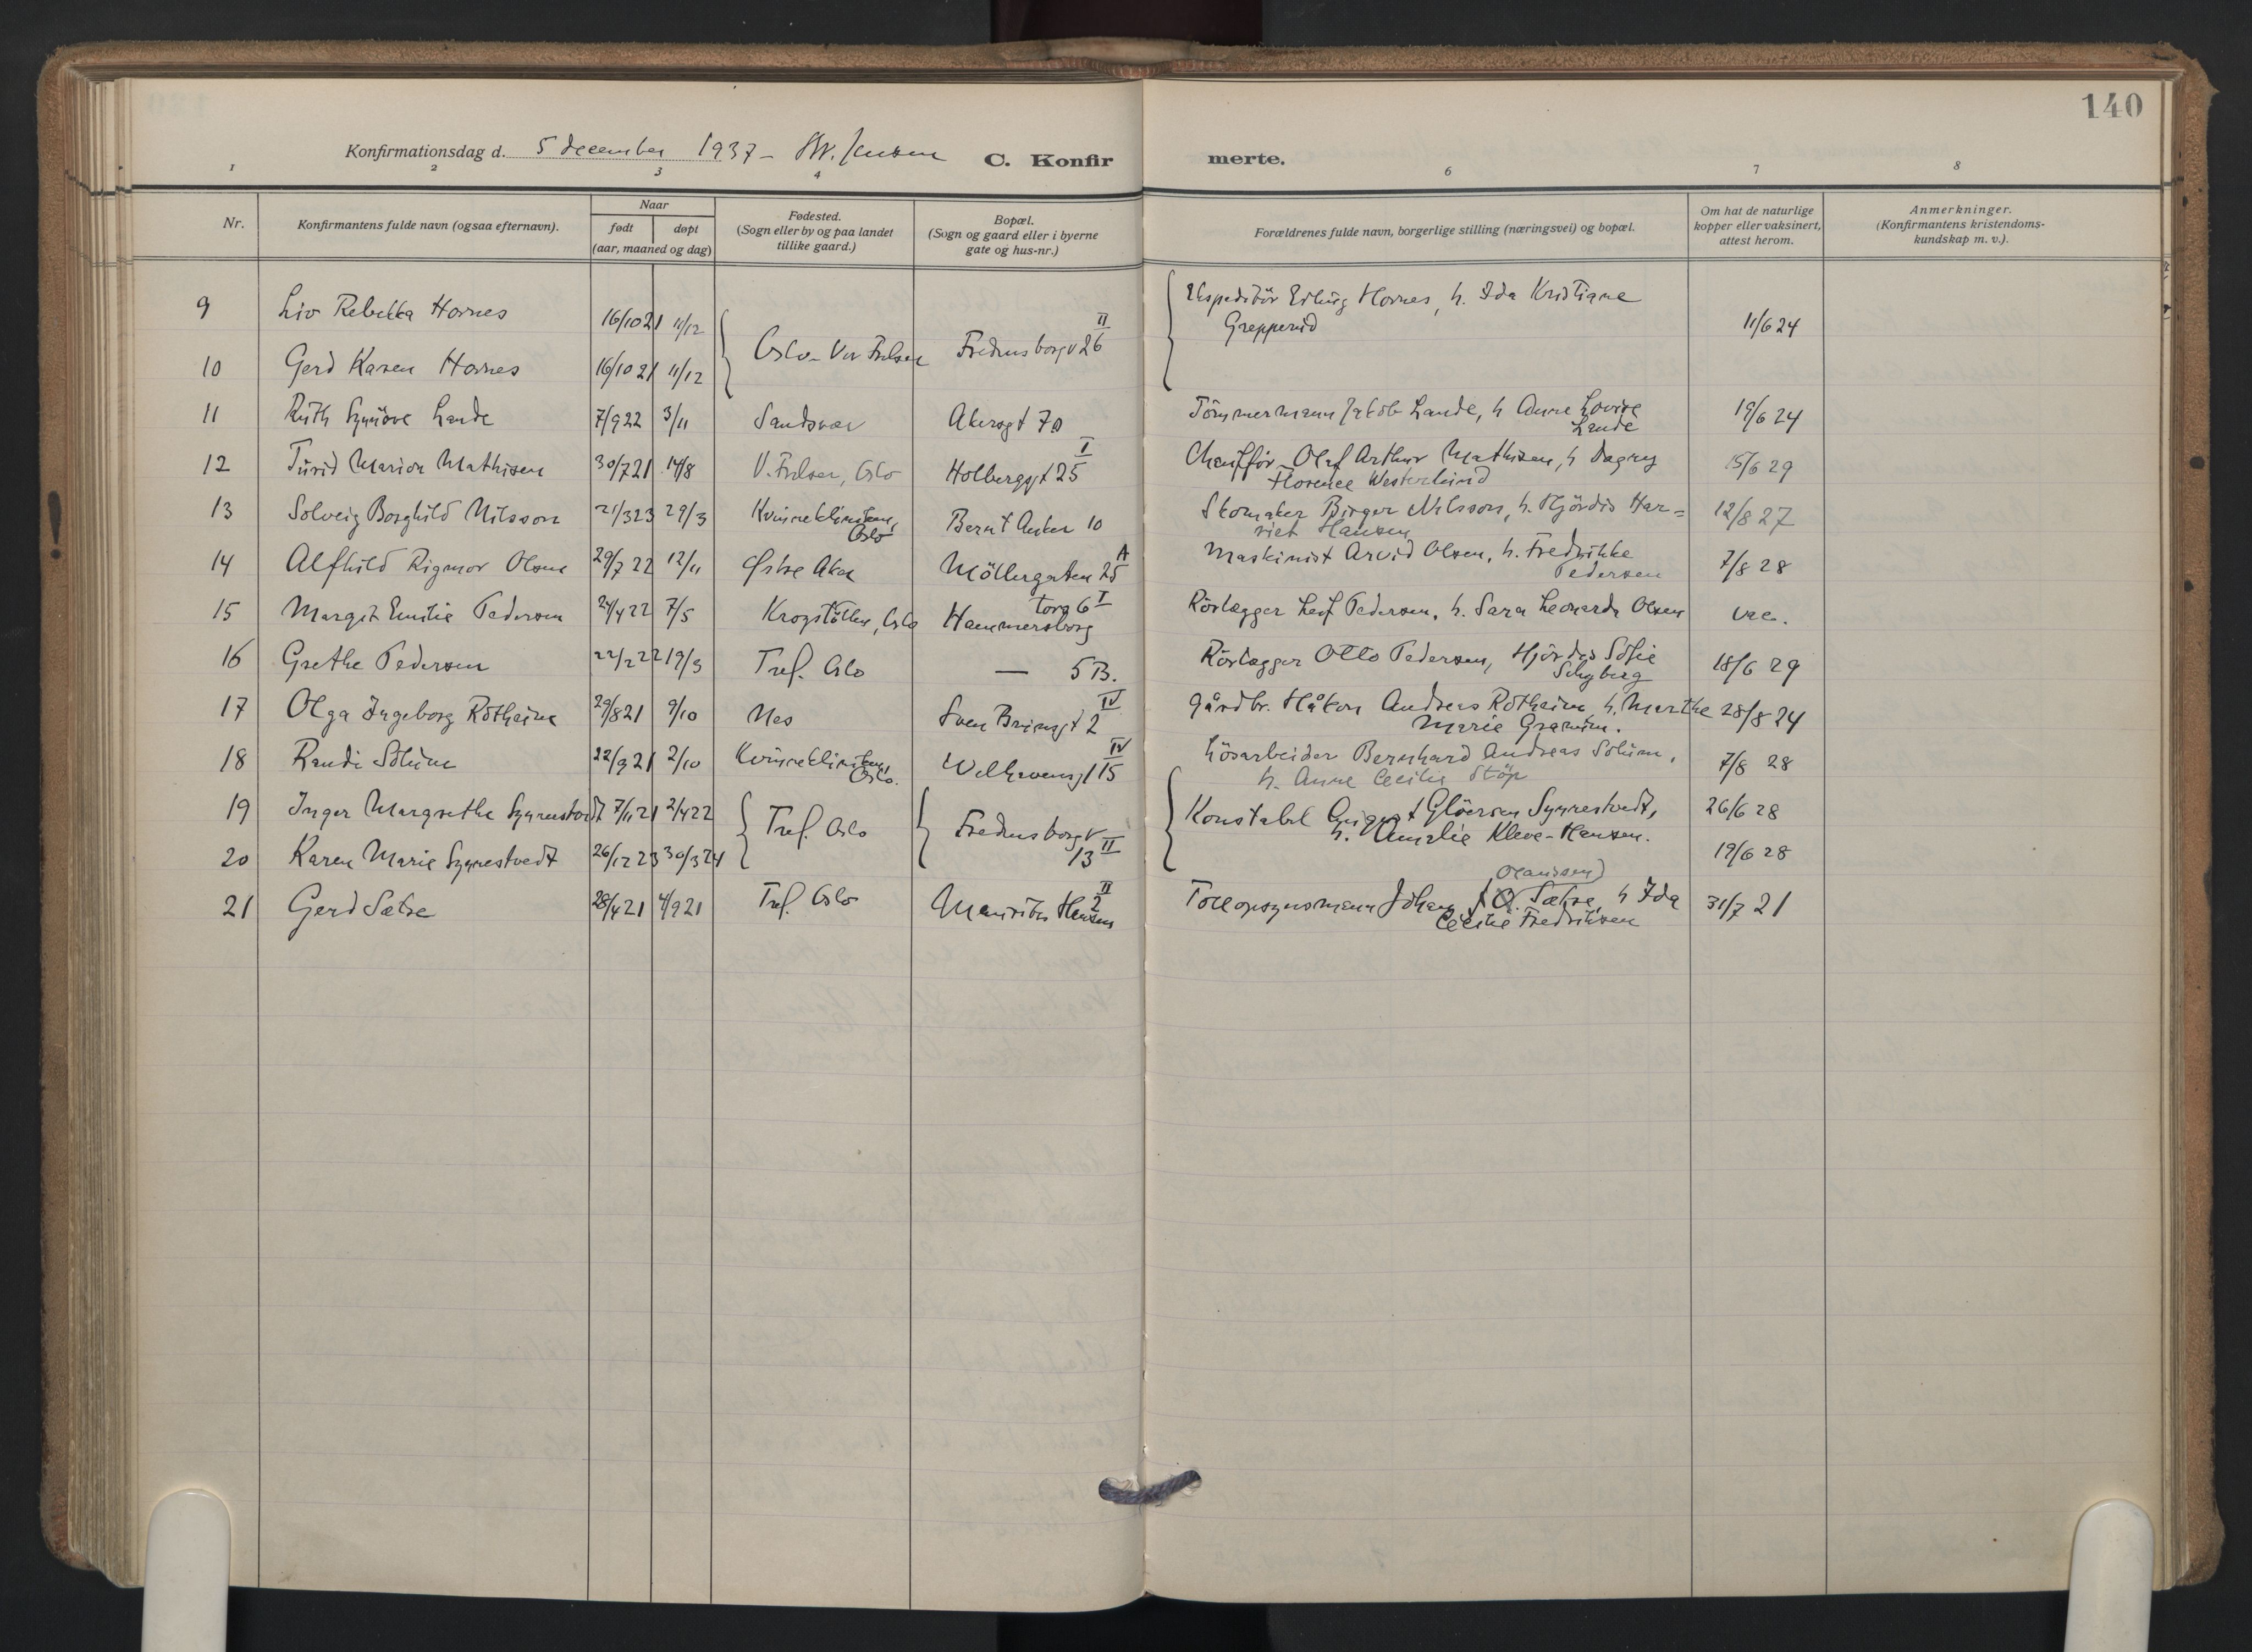 140
Konfirmationsdag d. 5 december 1937 - C. Konfirmerte.
1 2 3 4 6 7 8
Nr.
Konfirmantens fulde navn (ogsaa efternavn).
Naar
født døpt
(aar, maaned og dag)
Fødested.
(Sogn eller by og paa landet
tillike gaard.)
Bopæl.
(Sogn og gaard eller i byerne
gate og hus-nr.)
Forældrenes fulde navn, borgerlige stilling (næringsvei) og bopæl.
Om hat de naturlige
kopper eller vaksinert,
attest herom.
Anmerkninger.
(Konfirmantens kristendoms-
kundskap m. v.).
9 Liv Rebekka Hornes 16/10 21 11/12 Ekspeditör Erling Hornes, h. Ida Kristiane
Grepperud 11/6 24
Oslo - Vor Frelser Fredensborgv 26 II
10 Gerd Karen Hornes 16/10 21 11/12
11 Ruth Synnöve Lande 7/9 22 3/11 Sandsvær Akersgt 70 Tömmermann Jakob Lande, h Anne Lovise
Lande 19/6 24
12 Turid Marion Mathisen 30/7 21 14/8 V. Frelser, Oslo Holbergsgt 25 I Chaufför Olaf Arthur Mathisen, h Dagny
Florence Westerlund 15/6 29
13 Solveig Borghild Nilsson 21/3 23 29/3 Kvinneklinikken,
Oslo Bernt Anker 10 Skomaker Birger Nilsson, h. Hjördis Har=
riet Hansen 12/8 27
14 Alfhild Rigmor Olsen 29/7 22 12/11 Østre Aker Möllergaten 25 A Maskinist Arvid Olsen, h. Fredrikke
Pedersen 7/8 28
15 Margit Emilie Pedersen 24/4 22 7/5 Krogstötten, Oslo Hammersborg
torg 6 I Rörlegger Leif Pedersen, h. Sara Leonarda Olsen vac.
16 Grethe Pedersen 22/2 22 19/3 Tref. Oslo — 5 B. Rörlegger Otto Pedersen, Hjördis Sofie
Schyberg 18/6 29
17 Olga Ingeborg Rötheim 29/8 21 9/10 Nes Sven Brunsgt 2 IV Gårdbr. Håkon Andreas Rötheim, h. Marthe
Marie 28/8 24
18 Randi Solum 22/9 21 2/10 Kvinneklinikken,
Oslo. Welhavensgt 15 IV Lösarbeider Bernhard Andreas Solum,
h. Anne Cecilie Stöp 7/8 28
19 Inger Margrethe Synnestvedt 7/11 21 2/4 22 Tref. Oslo Fredensborgv
13 II Konstabel August Glöersen Synnestvedt,
h. Amalie Kleve-Hansen. 26/6 28
20 Karen Marie Synnestvedt 26/12 23 30/3 24 19/6 28
21 Gerd Sætre 28/4 21 4/9 21 Tref. Oslo Mauritz Hansens 2 II Tollopsynsmann Johan O. (Olaussen) Sætre, h Ida
Cecilie Fredriksen 31/7 21